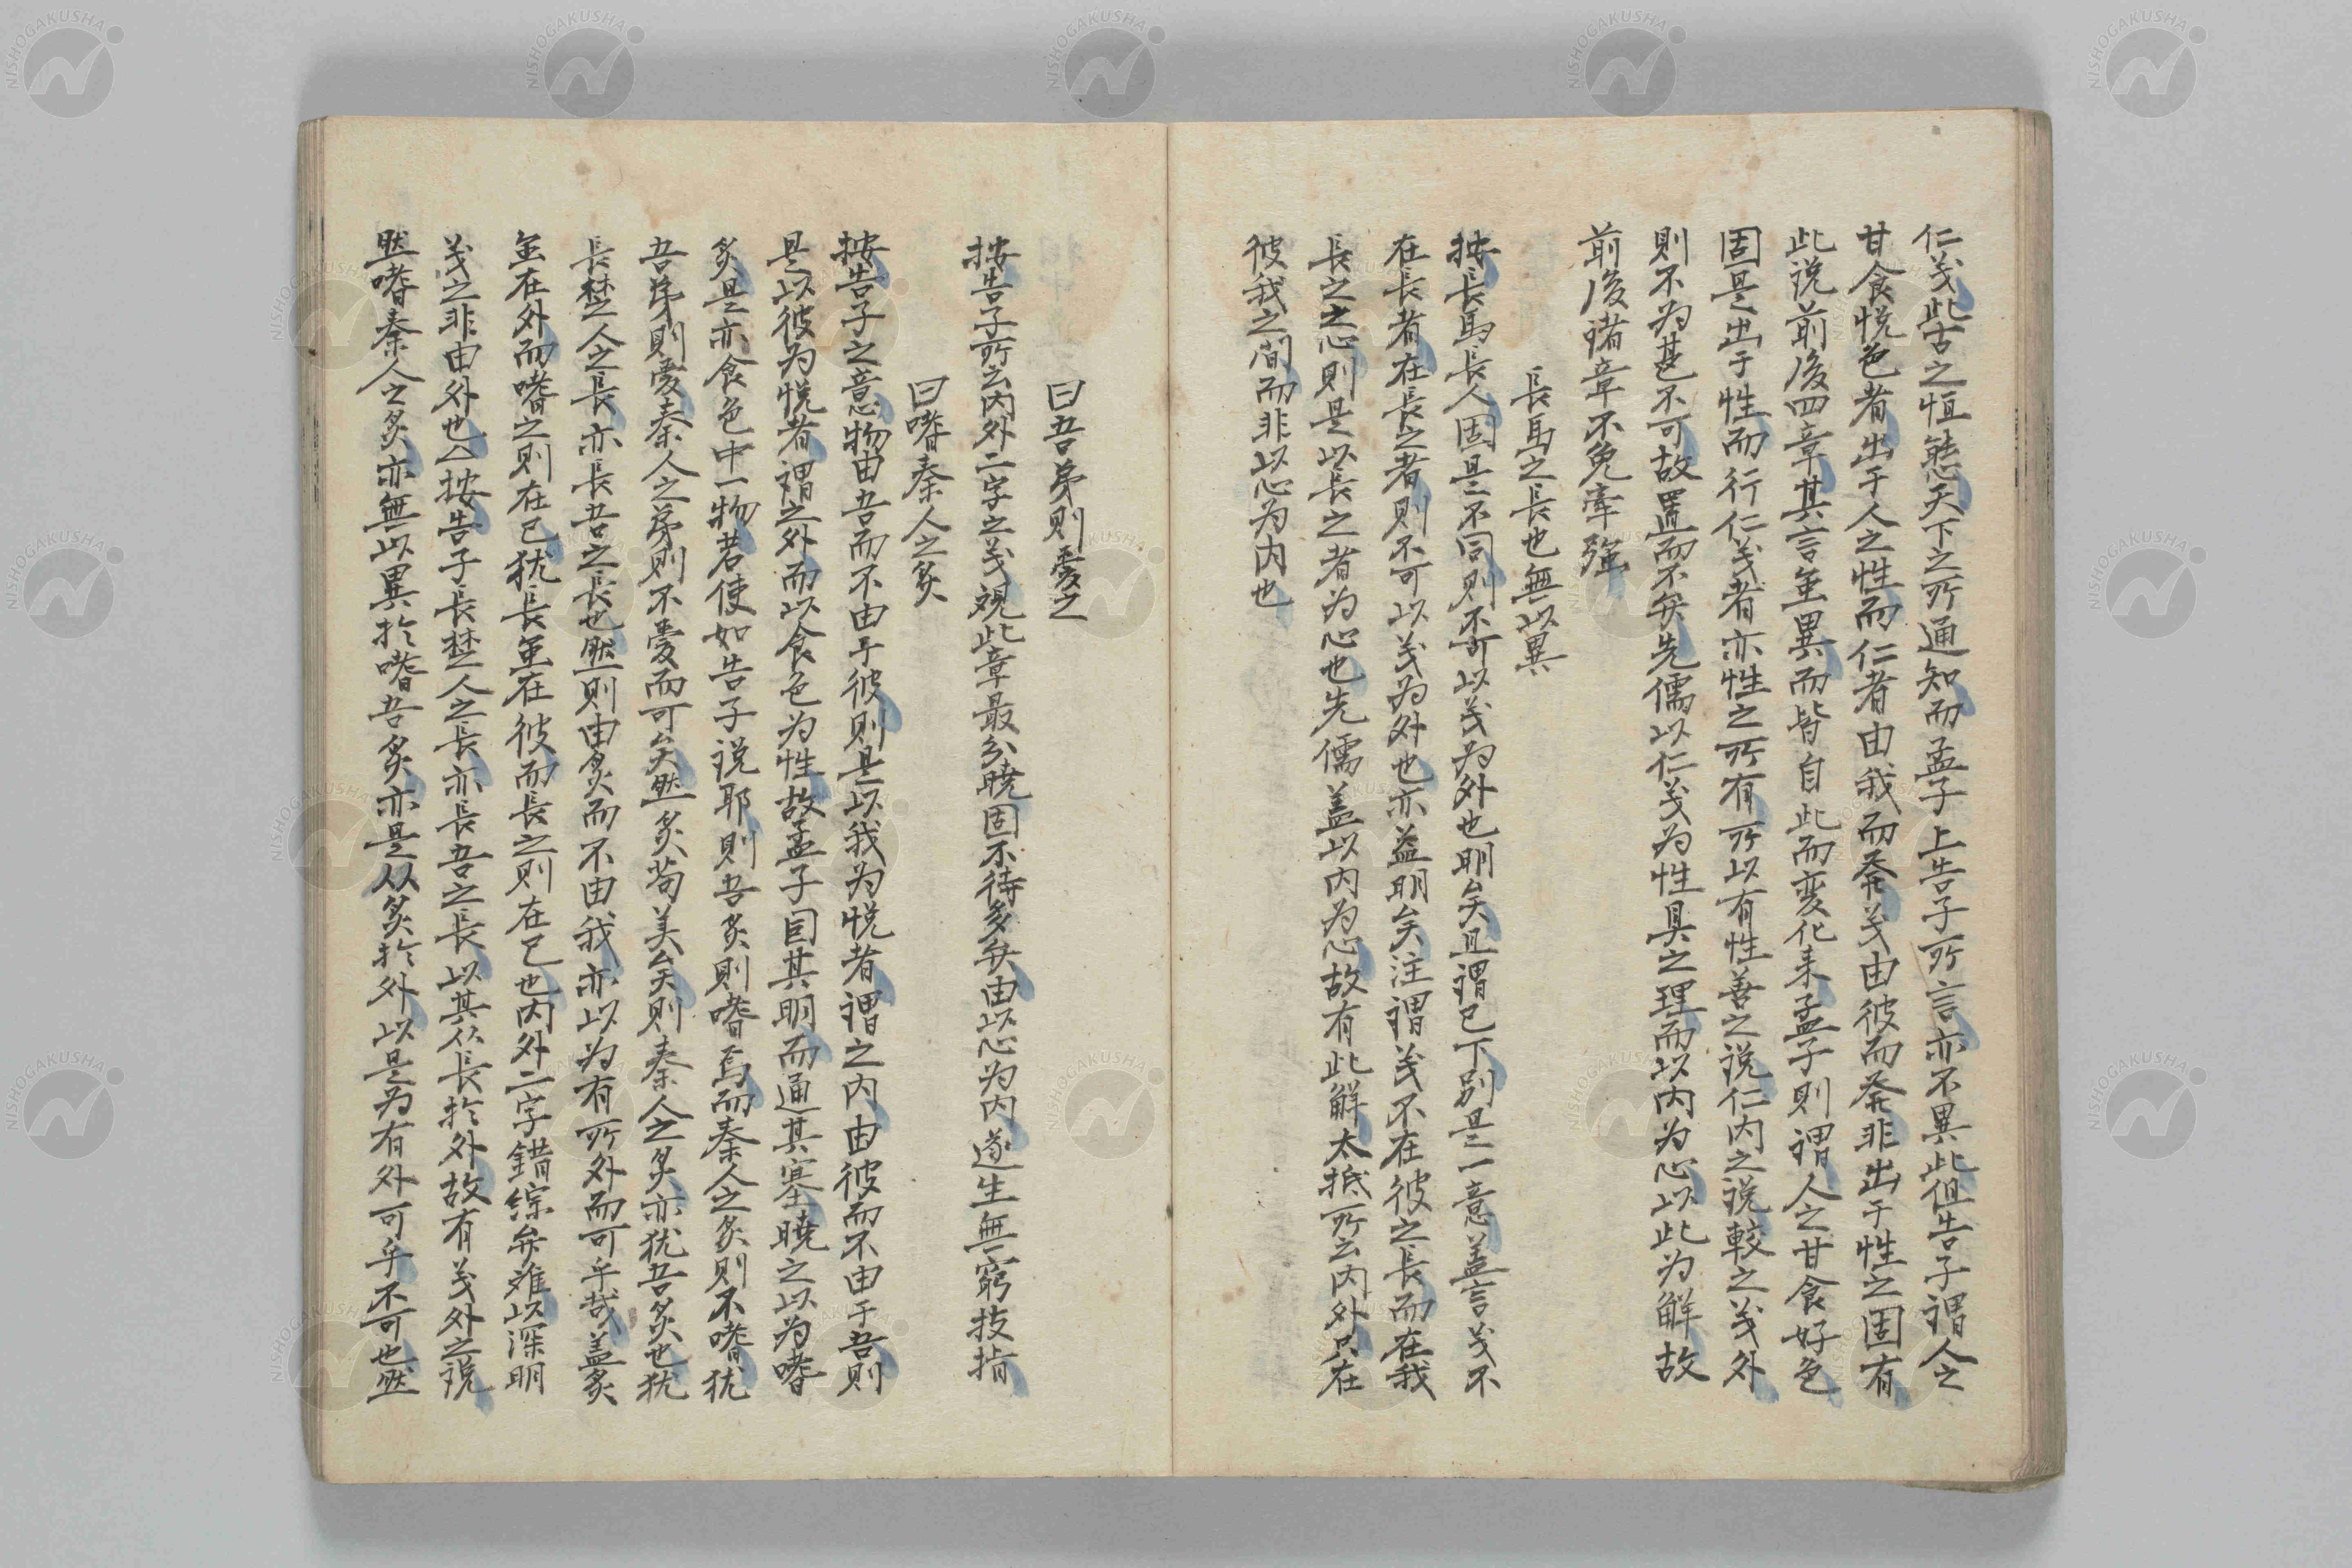 仁义此古之恒態天下之所通知而孟子上告子所言亦不異此但告子謂人之
甘食悦色者出于人之性而仁者由我而発义由彼而発非出于性之固有
此説前後四章其言虽異而皆自此而変化来孟子則謂人之甘食好色
固是出于性而行仁义者亦性之所有所以有性善之説仁内之説較之义外
則不为甚不可故置而不弁先儒以仁义为性具之理而以内为心以此为解故
前後諸章不免牽強
長馬之長也無以異
按長馬長人固是不同則不可以义为外也明矣且謂已下別是一意盖言义不
在長者在長之者則不可以义为外也亦益明矣注謂义不在彼之長而在我
長之之心則是以長之者为心也先儒盖以内为心故有此解太抵所云内外只在
彼我之间而非以心为内也
曰吾弟則愛之
按告子所云内外二字之义覌此章最分曉固不待多弁由以心为内遂生無窮技指
曰嗜秦人之炙
按告子之意物由吾而不由于彼則是以我为悦者謂之内由彼而不由于吾則
是以彼为悦者謂之外而以食色为性故孟子因其明而通其塞曉之以为嗜
炙是亦食色中一物若使如告子説耶則吾炙則嗜焉而秦人之炙則不嗜犹
吾弟則愛秦人之弟則不愛而可矣然炙苟美矣則秦人之炙亦犹吾炙也犹
長楚人之長亦長吾之長也然則由炙而不由我亦以为有所外而可乎哉盖炙
虽在外而嗜之則在已犹長虽在彼而長之則在已也内外二字錯綜弁难以深明
义之非由外也△按告子長楚人之長亦長吾之長以其从長於外故有义外之説
然嗜秦人之炙亦無以異於嗜吾炙亦是从炙於外以是为有外可乎不可也然
NISHOGAKUSHA